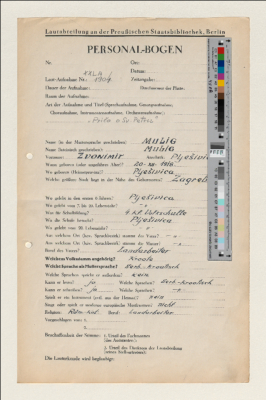 Lautabteilung an der Preußischen Staatsbibliothek, Berlin
PERSONAL-BOGEN
Nr. Ort:
Datum:
Laut-Aufnahme Nr.: 1904 Zeitangabe:
Dauer der Aufnahme: Durchmesser der Platte:
Raum der Aufnahme:
Art der Aufnahme und Titel (Sprechaufnahme, Gesangsaufnahme,
Choraufnahme, Instrumentenaufnahme, Orchesteraufnahme):
Name (in der Muttersprache geschrieben): MULIG
Name (lateinisch geschrieben): Mulig
Vorname: ZVONIMIR Pljesivica
Wann geboren (oder ungefähres Alter)? 20. XII. 1916.
Wo geboren (Heimatsort)? Pljesivica
Welche größere Stadt liegt in der Nähe des Geburtsortes? Zagreb
Wo gelebt in den ersten 6 Jahren? Pljesivica
Wo gelebt vom 7. bis 20. Lebensjahr? -"-
Was für Schulbildung? 4 Kl. Volksschule
Wo die Schule besucht? Pljesivica
Wo gelebt vom 20. Lebensjahr? -"-
Aus welchem Ort (bzw. Sprachbezirk) stammt der Vater? -"-
Aus welchem Ort (bzw. Sprachbezirk) stammt die Mutter? -"-
Beruf des Vaters? Landarbeiter
Welchem Volksstamm angehörig? Kroate
Welche Sprache als Muttersprache? Serb.-kroatisch
Welche Sprachen spricht er außerdem? keine
Kann er lesen? ja Welche Sprachen? Serb.-kroatisch
Kann er schreiben? ja Welche Sprachen? -"-
Spielt er ein Instrument (evtl. aus der Heimat)? nein
Singt oder spielt er moderne europäische Musikweisen? nicht
Religion: Röm.-kat. Beruf: Landarbeiter
Vorgeschlagen von: 1.
2.
Beschaffenheit der Stimme: 1. Urteil des Fachmannes
(des Assistenten):
2. Urteil des Direktors der Lautabteilung
(seines Stellvertreters):
Die Lauturkunde wird beglaubigt: